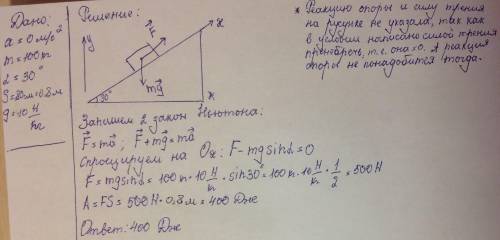 Дано:
a = 0 м/с²
m = 100 кг
α = 30°
S = 80см = 0.8 м
g = 10 Н/кг
Решение:
y
F
x
30°
mg
x
Запишем 2 закон Ньютона:
F = ma ; F + mg = ma
Спроецируем на Ox : F - mg sinα = 0
F = mg sinα = 100 кг · 10 Н/кг · sin 30° = 100 кг · 10 Н/кг · 1/2 = 500 Н
A = FS = 500 Н · 0,8 м = 400 Дж
Ответ: 400 Дж
* Реакцию опоры и силу трения
на рисунке не указала, так как
в условии написано силой трения
пренебречь, т.е. она = 0. А реакция
опоры не понадобится тогда.